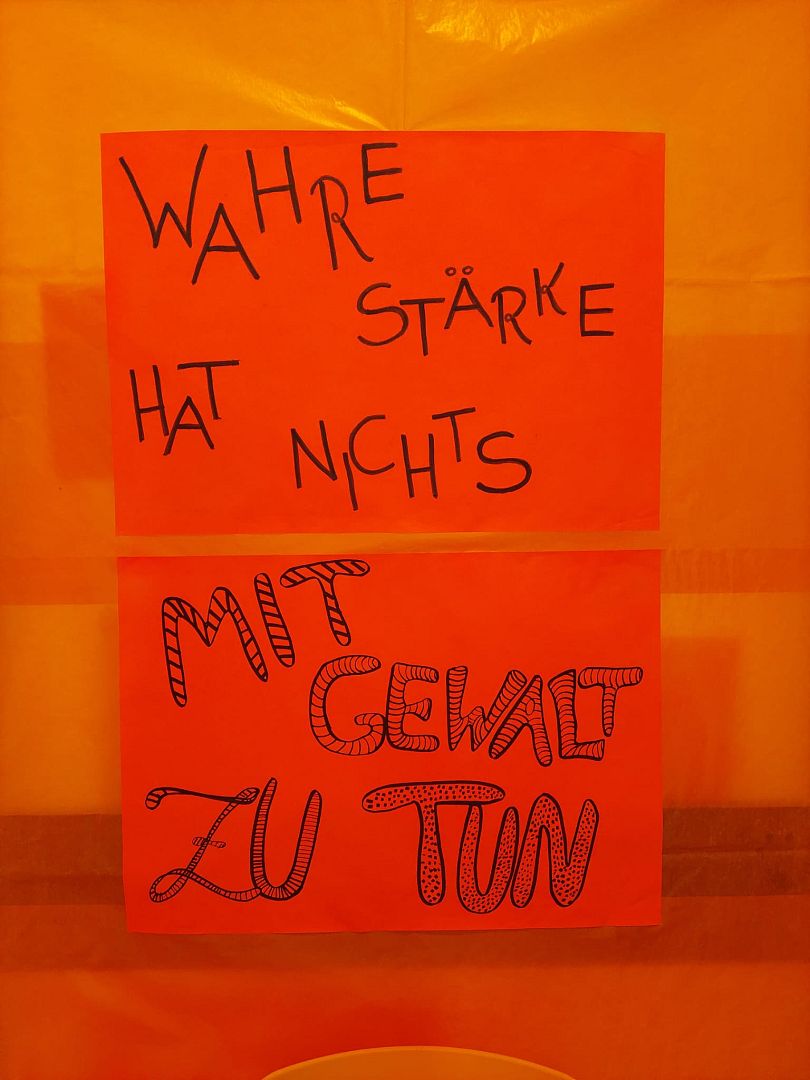 WAHRE
STÄRKE
HAT
NICHTS
MIT
GEWALT
ZU TUN